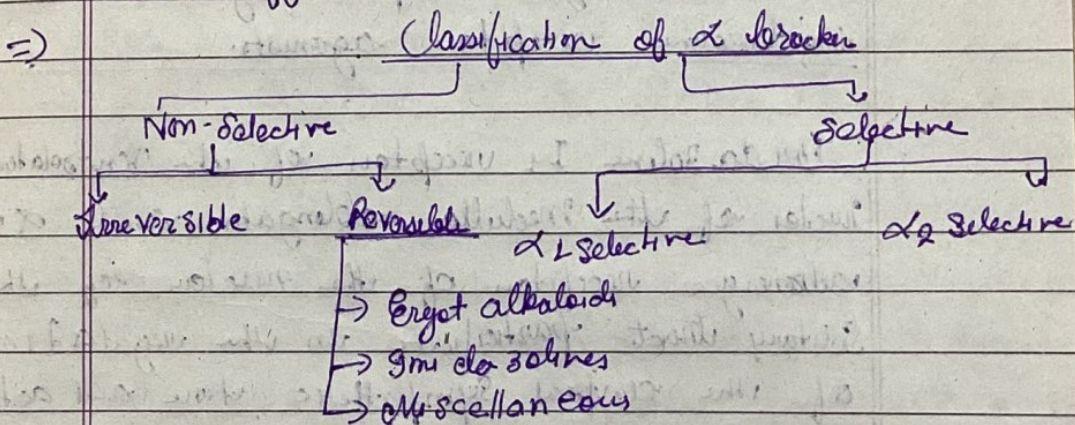 => Classification of α blocker
Non-Selective Selective
Irreversible Reversible α1 Selective α2 Selective
→ Ergot alkaloids
→ Imidazolines
→ Miscellaneous